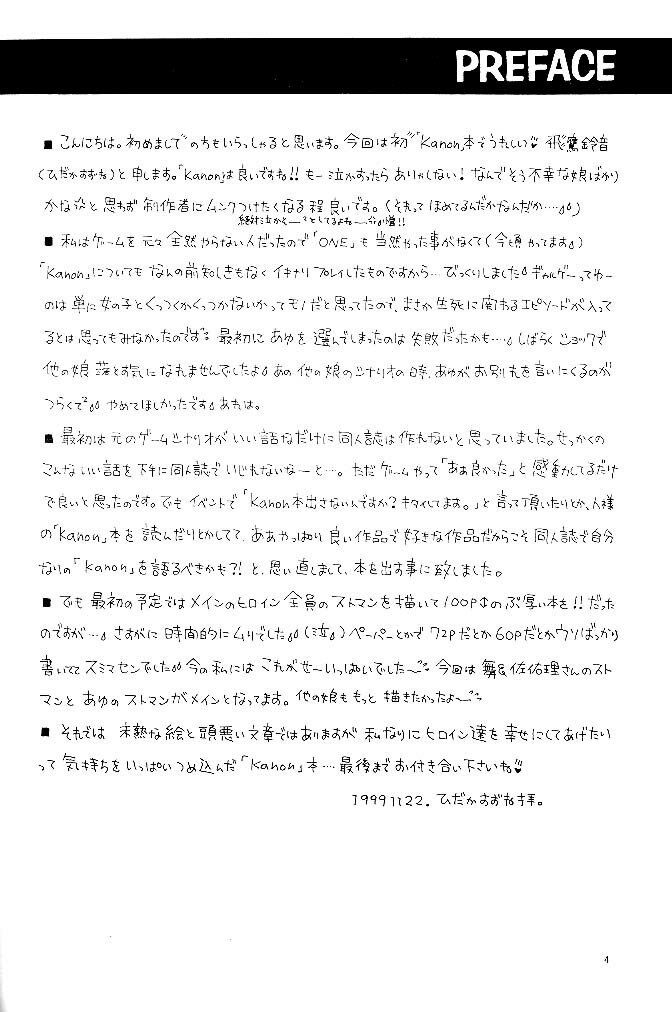 PREFACE
■ こんにちは。初めましての方もいらっしゃると思います。今回は初"Kanon本でうれしい♥ 飛鷹鈴音
(ひだかすずね)と申します。「Kanon」は良いですね!! もー泣かすったらありゃしない! なんでそう不幸な娘ばかり
かな と思わず 制作者にムンクつけたくなる程 良いです。(それって ほめてるんだかなんだか…)
■ 私はゲームを元々全然やらない人だったので「ONE」も当然やった事がなくて(今頃やってます)
「Kanon」についても なんの前知しきもなく イキナリ プレイしたものですから…びっくりしました ギャルゲーってゆー
のは単に女の子とくっつくかくっつかないかってモノだと思ってたので、まさか生死に関わるエピソードが入って
るとは思ってもみなかったのです 最初にあゆを選んでしまったのは失敗だったかも… しばらくショックで
他の娘 落とす気になれませんでしたよ あの他の娘のシナリオの時、あゆがお別れを言いにくるのが
つらくて やめてほしかったです あれは。
■ 最初は元のゲームシナリオがいい話なだけに同人誌は作れないと思っていました。せっかくの
こんないい話を下手に同人誌でいじれないなーと…。ただゲームやって「あぁ良かった」と感動してるだけ
で良いと思ったのです。でも イベントで「Kanon本出さないんですか? キタイしてます。」と言って頂いたりとか、人様
の「Kanon」本を読んだりとかしてて、ああやっぱり良い作品で好きな作品だからこそ同人誌で自分
なりの「Kanon」を語るべきかも?! と、思い直しまして、本を出す事に致しました。
■ でも最初の予定ではメインのヒロイン全員のストマンを描いて100P↑のぶ厚い本を!! だった
のですが… さすがに時間的にムリでした(泣)ペーパーとかで72Pだとか60Pだとかウソばっかり
書いててスミマセンでした 今の私には これがせーいっぱいでした〜 今回は舞&佐佑理さんのスト
マンと あゆのストマンがメインとなってます。他の娘ももっと描きたかったよ〜
■ それでは 未熟な絵と頭悪い文章ではありますが 私なりにヒロイン達を幸せにしてあげたい
って気持ちをいっぱいつめ込んだ「Kanon」本…最後までお付き合い下さいね♥
1999 11 22. ひだかすずね拝。
4